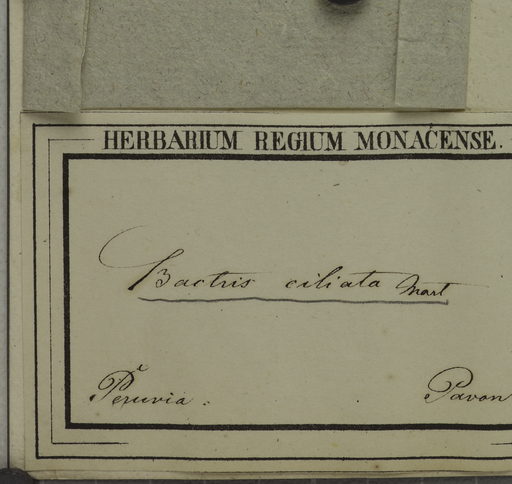 HERBARIUM REGIUM MONACENSE.
Bactris ciliata Mart
Peruvia. Pavon